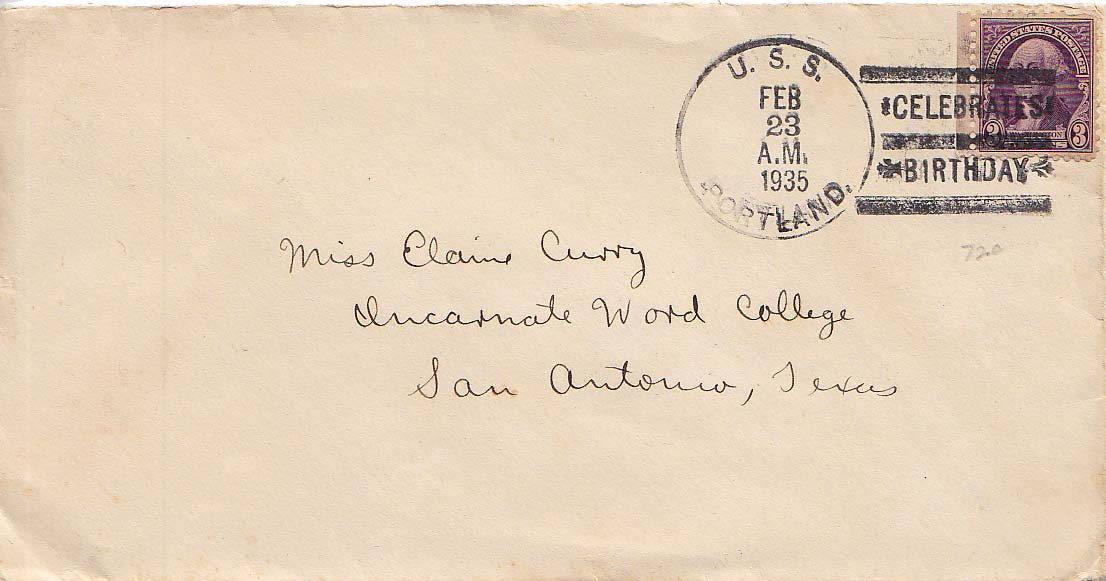 U. S. S.
FEB
23
A.M.
1935
PORTLAND.
CELEBRATES
BIRTHDAY
UNITED STATES POSTAGE
3 3
720
Miss Elaine Curry
Incarnate Word College
San Antonio, Texas